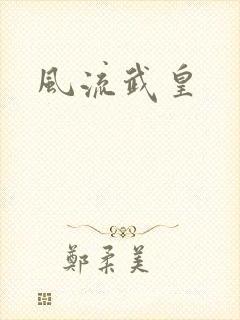 風流武皇
鄭柔美